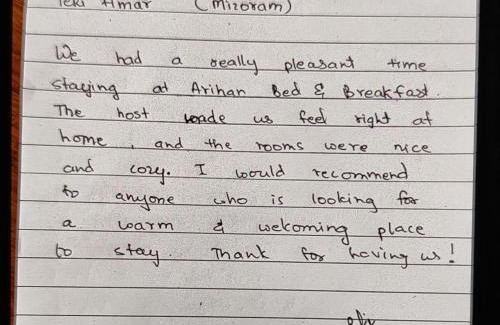 (Mizoram)
We had a really pleasant time
staying at Arihan Bed & Breakfast.
The host made us feel right at
home, and the rooms were nice
and cozy. I would recommend
to anyone who is looking for
a warm & welcoming place
to stay. Thank for having us!